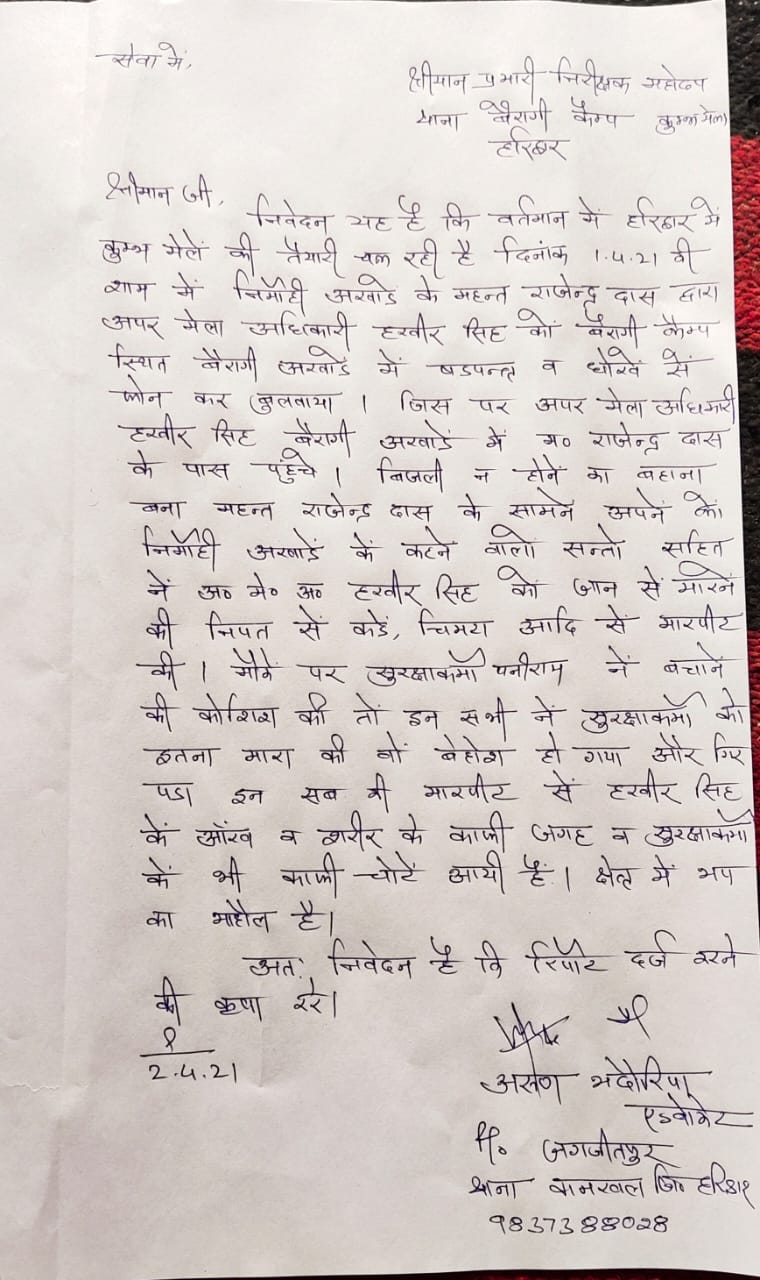 सेवा में,
श्रीमान प्रभारी निरीक्षक महोदय
थाना बैरागी कैम्प कुम्भ मेला
हरिद्वार
श्रीमान जी,
निवेदन यह है कि वर्तमान में हरिद्वार में
कुम्भ मेलें की तैयारी चल रही है दिनांक 1.4.21 की
शाम में निर्मोही अखाडे के महन्त राजेन्द्र दास द्वारा
अपर मेला अधिकारी हरवीर सिह को बैरागी कैम्प
स्थित बैरागी अखाडें में षडयन्त्र व धोखें सें
फोन कर बुलवाया । जिस पर अपर मेला अधिकारी
हरवीर सिह बैरागी अखाडें में म० राजेन्द्र दास
के पास पहुंचे । बिजली न होनें का बहाना
बना महन्त राजेन्द्र दास के सामने अपनें कों
निर्मोही अखाडें कें कहने वालो सन्तो सहित
नें अ० मे० अ० हरवीर सिह कों जान सें मारनें
की नियत सें कडें, चिमटा आदि सें मारपीट
की । मौकें पर सुरक्षाकर्मी धनीराम नें बचानें
की कोशिश की तों इन सभी नें सुरक्षाकर्मी को
इतना मारा की वों बेहोश हो गया और गिर
पडा इन सब की मारपीट सें हरवीर सिह
कें आँख व शरीर के काफी जगह व सुरक्षाकर्मी
कें भी काफी चोटें आयी हैं । क्षेत्र में भय
का माहौल है।
अत: निवेदन है कि रिपोर्ट दर्ज करने
की कृपा करें।
2.4.21
अरूण भदौरिया
एडवोकेट
नि० जगजीतपुर
थाना कनखल जि० हरिद्वार
9837388028